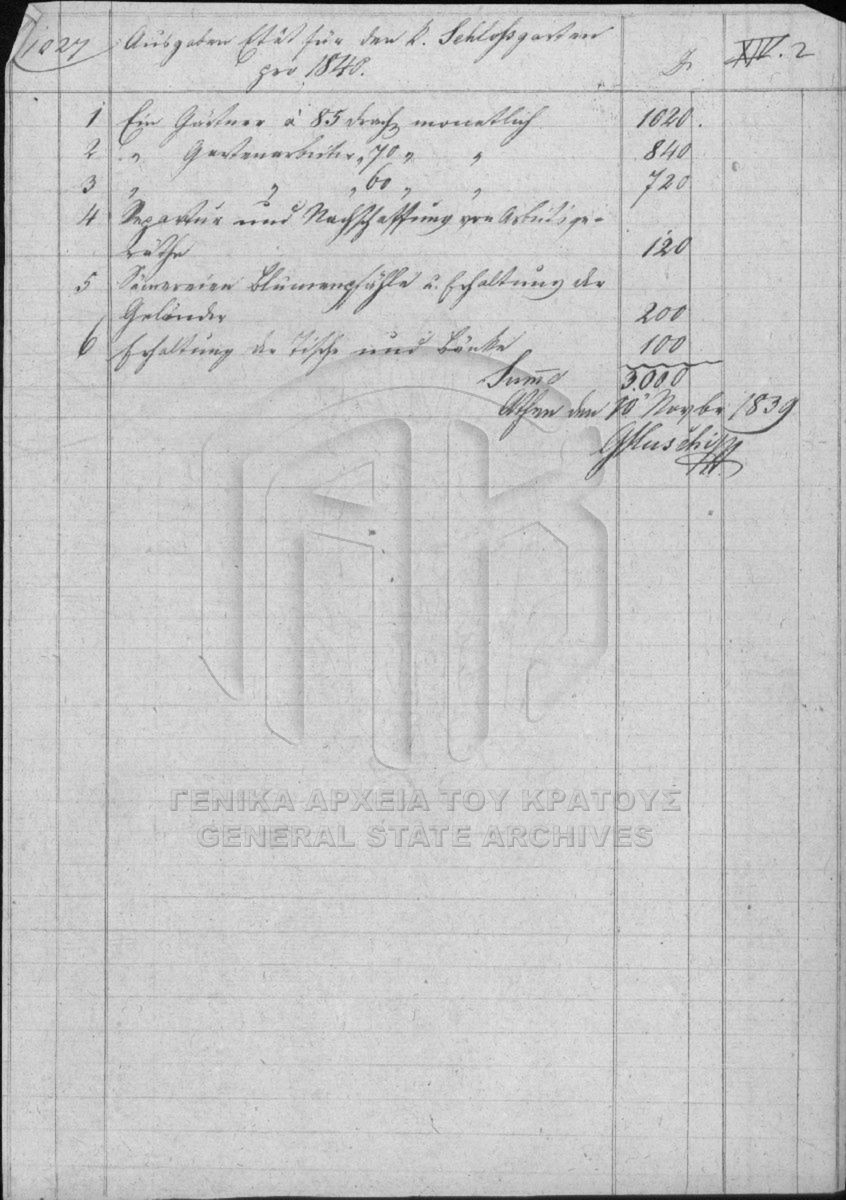 1827 Ausgaben Etat für den k. Schloßgarten
pro 1840.
XIV. 2
1 Ein Gärtner à 85 drach monatlich 1020.
2 „ Gartenarbeiter „ 70 „ „ 840
3 „ „ „ 60 „ „ 720
4 Reparatur und Nachschaffung von Arbeitsge-
räthe 120
5 Sämereien Blumenpfähle u. Erhaltung der
Geländer 200
6 Erhaltung der Tische und Bänke 100
Summe 3.000
Athen den 10 Novbr 1839
ΓΕΝΙΚΑ ΑΡΧΕΙΑ ΤΟΥ ΚΡΑΤΟΥΣ
GENERAL STATE ARCHIVES